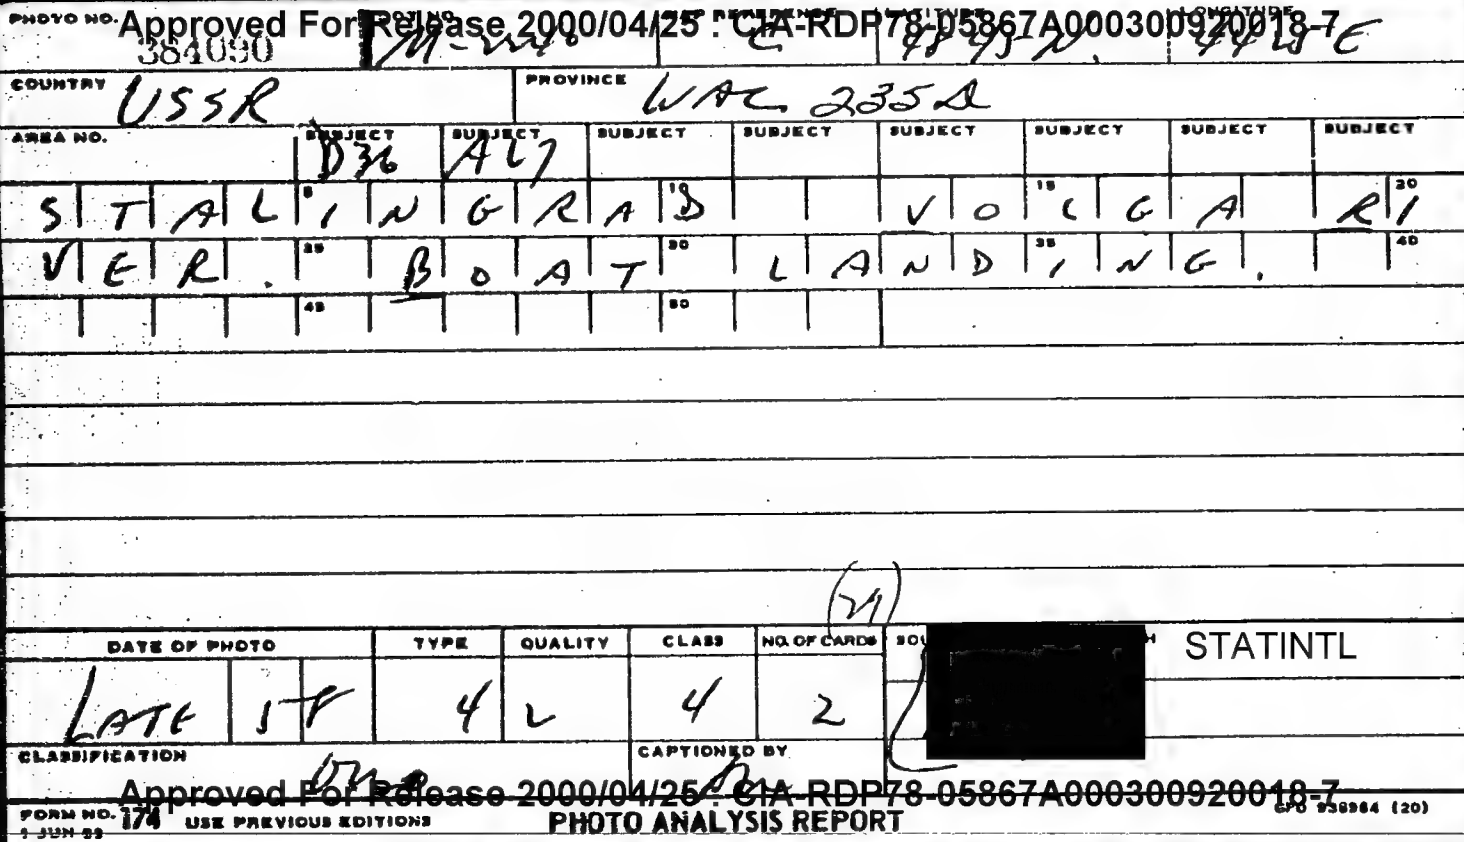 PHOTO NO. Approved For Release 2000/04/25 : CIA-RDP78-05867A000300920018-7
384090 LATITUDE LONGITUDE
COUNTRY USSR PROVINCE WAC 235
AREA NO. SUBJECT SUBJECT SUBJECT SUBJECT SUBJECT SUBJECT SUBJECT SUBJECT
D36
5 10 15 20
STALINGRAD VOLGA RI
25 30 35 40
VER. BOAT LANDING.
45 50
(21)
DATE OF PHOTO TYPE QUALITY CLASS NO. OF CARDS STATINTL
LATE 58 4 2 4 2
CLASSIFICATION CAPTIONED BY
Approved For Release 2000/04/25 : CIA-RDP78-05867A000300920018-7
FORM NO. 174 USE PREVIOUS EDITIONS PHOTO ANALYSIS REPORT GPO 938964 (20)
1 JUN 59